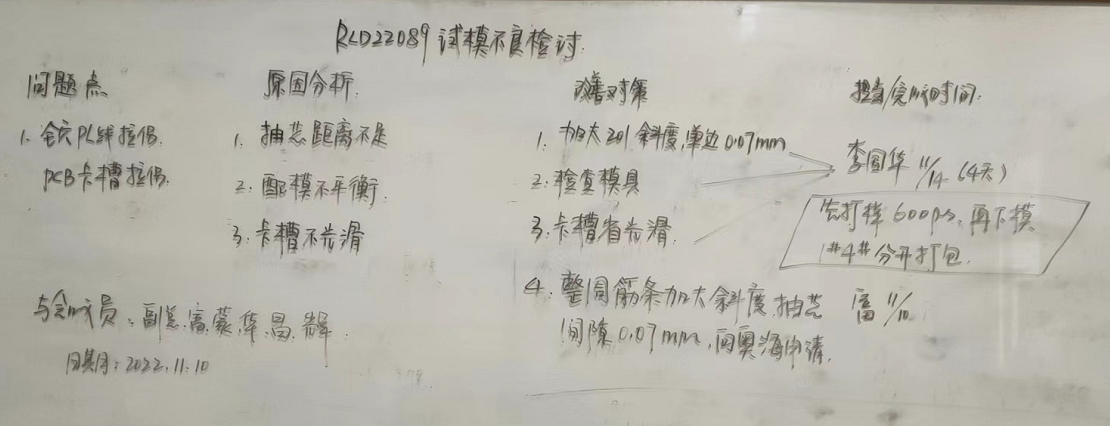 RLD22089 试模不良检讨.
问题点
原因分析.
改善对策
担当/完成时间:
1. 全穴PL线拉伤.
PCB卡槽拉伤.
1. 抽芯距离不足
2. 配模不平衡.
3. 卡槽不光滑
1. 加大 斜度,单边0.07mm
2. 检查模具
3. 卡槽省光滑.
4. 整圈筋条加大斜度,抽芯
间隙0.07mm,向奥海申请.
李国华 11/14 (4天)
先打样600ps,再下模
1#4#分开打包.
富 11/10
与会成员: 副总.富.蒙.华.昌.
日期: 2022.11.10